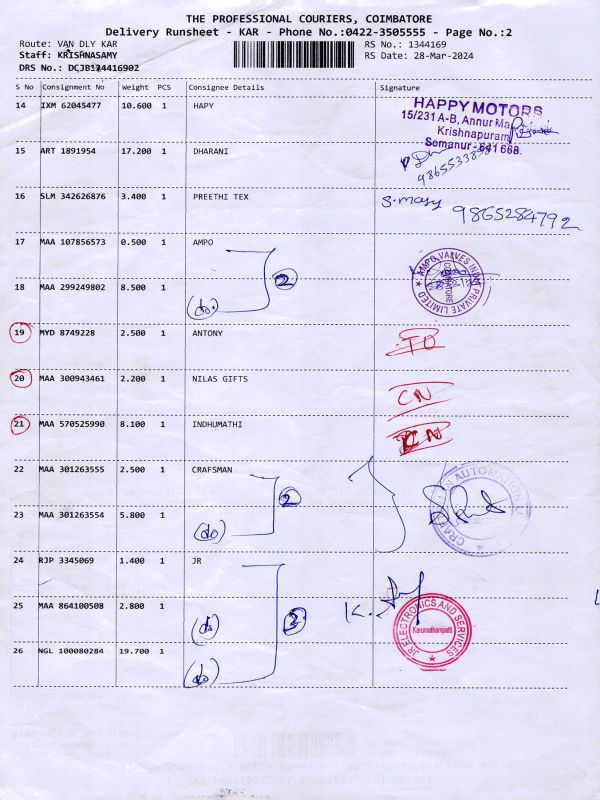 THE PROFESSIONAL COURIERS, COIMBATORE
Delivery Runsheet - KAR - Phone No.:0422-3505555 - Page No.:2
Route: VAN DLY KAR RS No.: 1344169
Staff: KRISHNASAMY RS Date: 28-Mar-2024
DRS No.: DCJB124416902
S No Consignment No Weight PCS Consignee Details Signature
14 IXM 62045477 10.600 1 HAPY
HAPPY MOTORS
15/231 A-B, Annur
Krishnapuram
Somanur - 641 668.
15 ART 1891954 17.200 1 DHARANI
16 SLM 342626876 3.400 1 PREETHI TEX
9865284792
17 MAA 107856573 0.500 1 AMPO
2
AMPO VALVES INDIA PRIVATE LIMITED
COIMBATORE
18 MAA 299249802 8.500 1
(do)
19 MYD 8749228 2.500 1 ANTONY
TO
20 MAA 300943461 2.200 1 NILAS GIFTS
CN
21 MAA 570525990 8.100 1 INDHUMATHI
CN
22 MAA 301263555 2.500 1 CRAFSMAN
2
23 MAA 301263554 5.800 1
(do)
24 RJP 3345069 1.400 1 JR
25 MAA 864100508 2.800 1
JR ELECTRONICS AND SERVICES
Karumathampatti
26 NGL 100080284 19.700 1
(do)